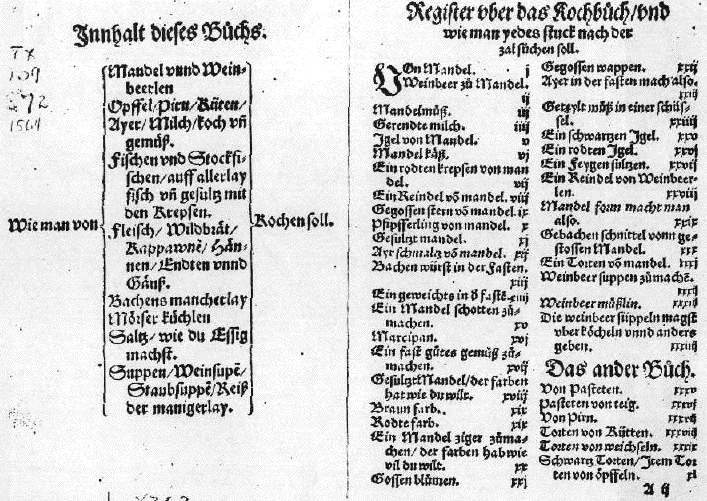 Innhalt dieses Bůchs.
TX
109
G72
1564
Wie man von
Mandel vnnd Wein-
beerlen
Opffel/Pirn/Küten/
Ayer/Milch/koch vñ
gemůß.
Fischen vnd Stockfi-
schen/auff allerlay
fisch vñ gesultz mit
den Krepsen.
Fleisch/Wildbrät/
Kappawnē/Hän-
nen/Endten vnnd
Gänß.
Bachens mancherlay
Mörser kůchlen
Saltz/wie du Essig
machst.
Suppen/Weinsupē/
Staubsuppē/Reiß
der manigerlay.
Kochen soll.
Register vber das Kochbůch/vnd
wie man yedes stuck nach der
zal sůchen soll.
VOn Mandel. j
Weinbeer zů Mandel.
ij
Mandelmůß. iij
Gerendte milch. iiij
Igel von Mandel. v
Mandel käß. vj
Ein rodten krepsen von man
del. vij
Ein Reindel võ mandel. viij
Gegossen stern võ mandel. ix
Pfipfferling von mandel. x
Gesultzt mandel. xj
Ayrschmaltz võ mandel. xij
Bachen würst in der Fasten.
xiij
Ein geweichts in d̄ fastē. xiiij
Ein Mandel schotten zů-
machen. xv
Marcipan. xvj
Ein fast gůtes gemůß zů-
machen. xvij
Gesultzt Mandel/der farben
hat wie du wilt. xviij
Braun farb. xix
Rodte farb. xix
Ein Mandel ziger zůma-
chen/der farben hab wie
vil du wilt. xx
Gossen blůmen. xxj
Gegossen wappen. xxij
Ayer in der fasten mach also.
xxiij
Getzylt můß in einer schüs-
sel. xxiiij
Ein schwartzen Igel. xxv
Ein rodten Igel. xxvj
Ein Feygen sultzen. xxvij
Ein Reindel von Weinbeer-
len. xxviij
Mandel form macht man
also. xxix
Gebachen schnittel vonn ge-
stossen Mandel. xxx
Ein Torten võ mandel. xxxj
Weinbeer suppen zůmachē.
xxxij
Weinbeer mößlin. xxxiij
Die weinbeer süppeln magst
vber köcheln vnnd anders
geben. xxxiiij
Das ander Bůch.
Von Pasteten. xxxv
Pasteten von teig. xxxvj
Von Pirn. xxxvij
Torten von Kütten. xxxviij
Torten von weichseln. xxxix
Schwartz Torten/Item Tor
ten von öpffeln. xl
A ij